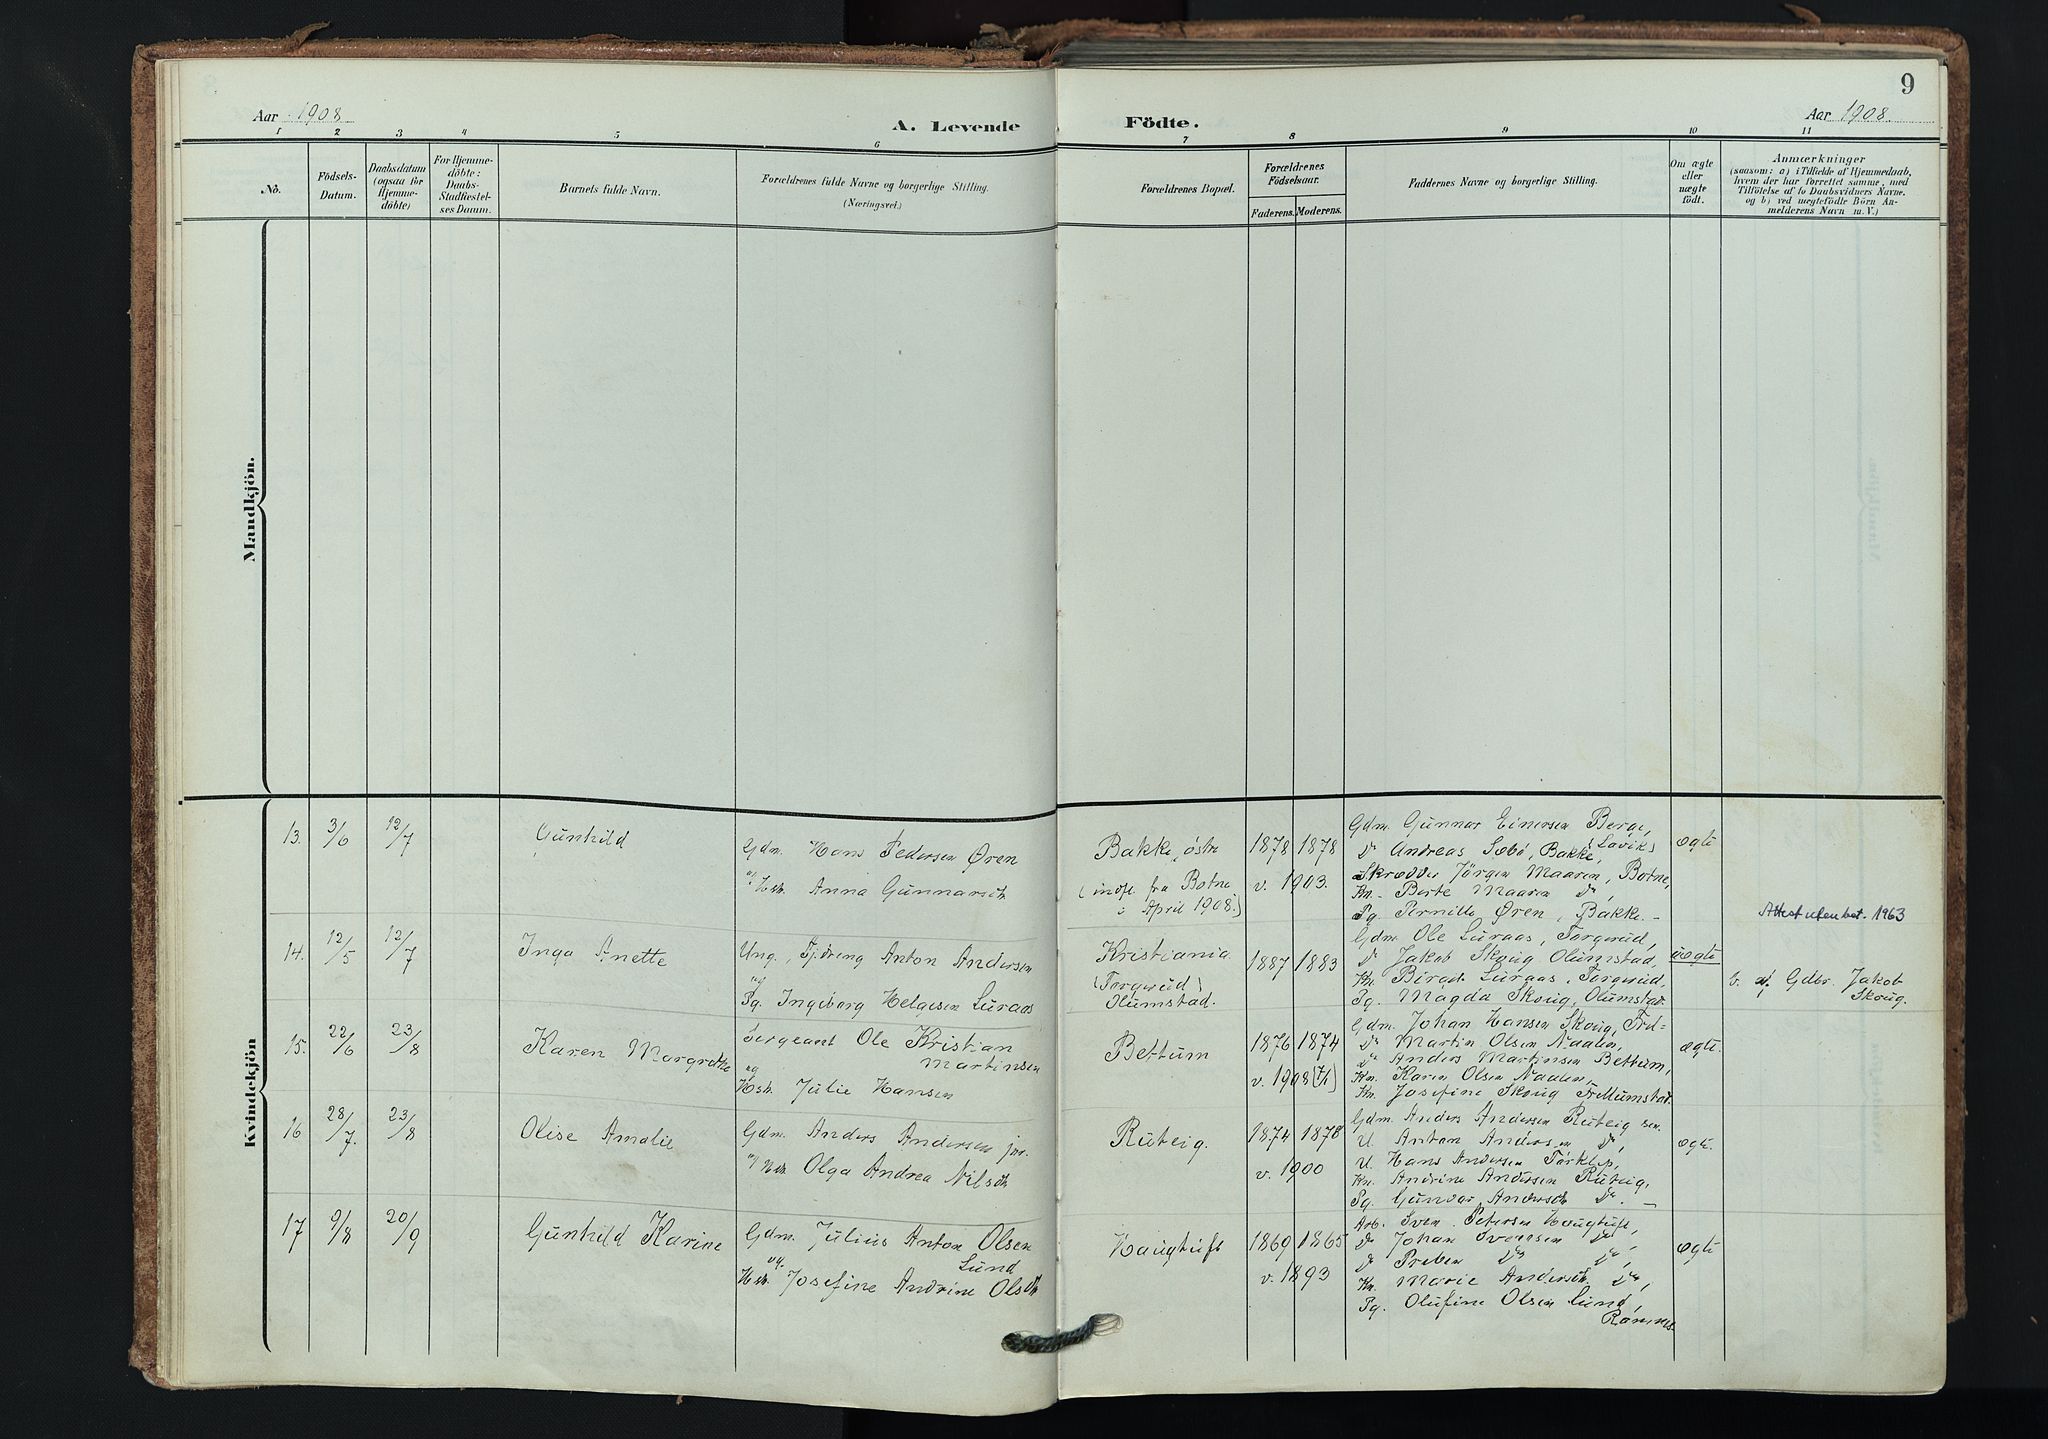 9
Aar 1908
A. Levende Födte.
Aar 1908.
1 2 3 4 5 6 7 8 9 10 11
No.
Födsels-
Datum.
Daabsdatum
(ogsaa for
Hjemme-
döbte)
For Hjemme-
döbte:
Daabs-
Stadfæstel-
ses Datum.
Barnets fulde Navn.
Forældrenes fulde Navne og borgerlige Stilling.
(Næringsvei.)
Forældrenes Bopæl.
Forældrenes
Födselsaar.
Faderens. Moderens.
Faddernes Navne og borgerlige Stilling.
Om ægte
eller
uægte
födt.
Anmærkninger
(saasom: a) i Tilfælde af Hjemmedaab,
hvem der har forrettet samme, med
Tilföielse af to Daabsvidners Navne.
og b) ved uægtefödte Börn An-
melderens Navn m. V.)
Mandkjön.
Kvindekjön
13. 3/6 12/7 Gunhild
Gdm. Hans Pedersen Øren
og Hst. Anna Gunnarsdt.
Bakke, østre
(indfl. fra Botne
i April 1908.)
1878 1878
v. 1903.
Gdm. Gunnar Einersen Berge,
do Andreas Sæbø, Bakke, (Laviks)
Skrædder Jörgen Maaren, Botne,
Kn. Berte Maaren do,
Pg. Pernille Øren, Bakke.-
ægte
Attest uten bet. 1963
14. 12/5 12/7 Inga Anette
Ung., Tjdreng Anton Andersen
og
Pg. Ingeborg Helgesen Luraas
Kristiania
(Torgerud)
Olumstad.
1887 1883
Gdm. Ole Luraas, Torgerud,
do Jakob Skoug, Olumstad,
Kn. Birgit Luraas, Torgerud,
Pg. Magda Skoug, Olumstad.
uægte
v. af Gdbr. Jakob
Skoug.
15. 22/6 23/8 Karen Margrethe
Sergeant Ole Kristian
Martinsen
og
Hst. Julie Hansen
Bettum
1876 1874
v. 1908 (7/1)
Gdm. Johan Hansen Skoug,
do Martin Olsen Naalen,
do Anders Martinsen Bettum,
Kn. Karen Olsen Naalen,
Kn. Josefine Skoug
ægte.
16 28/7. 23/8 Olise Amalie
Gdm. Anders Andersen jnr.
og Hst. Olga Andrea Nilsdt.
Ruteig.
1874 1878
v. 1900
Gdm. Anders Andersen Ruteig sen.
U. Anton Andersen do,
U. Hans Andersen Torklep,
Kn. Andrine Andersen Ruteig,
Pg. Gunvor Andersdt. do. —
ægte.
17 9/8 20/9 Gunhild Karine
Gdm. Julius Anton Olsen
Lund
og
Hst. Josefine Andrine Olsdt.
Haugtuft
1869 1865
v. 1893
Arb. Sven Petersen Haugtuft,
do Johan Svensen do,
do Preben do do,
Kn. Marie Andersdt. do,
Pg. Olufine Olsen Lund,
Ramnes.
ægte